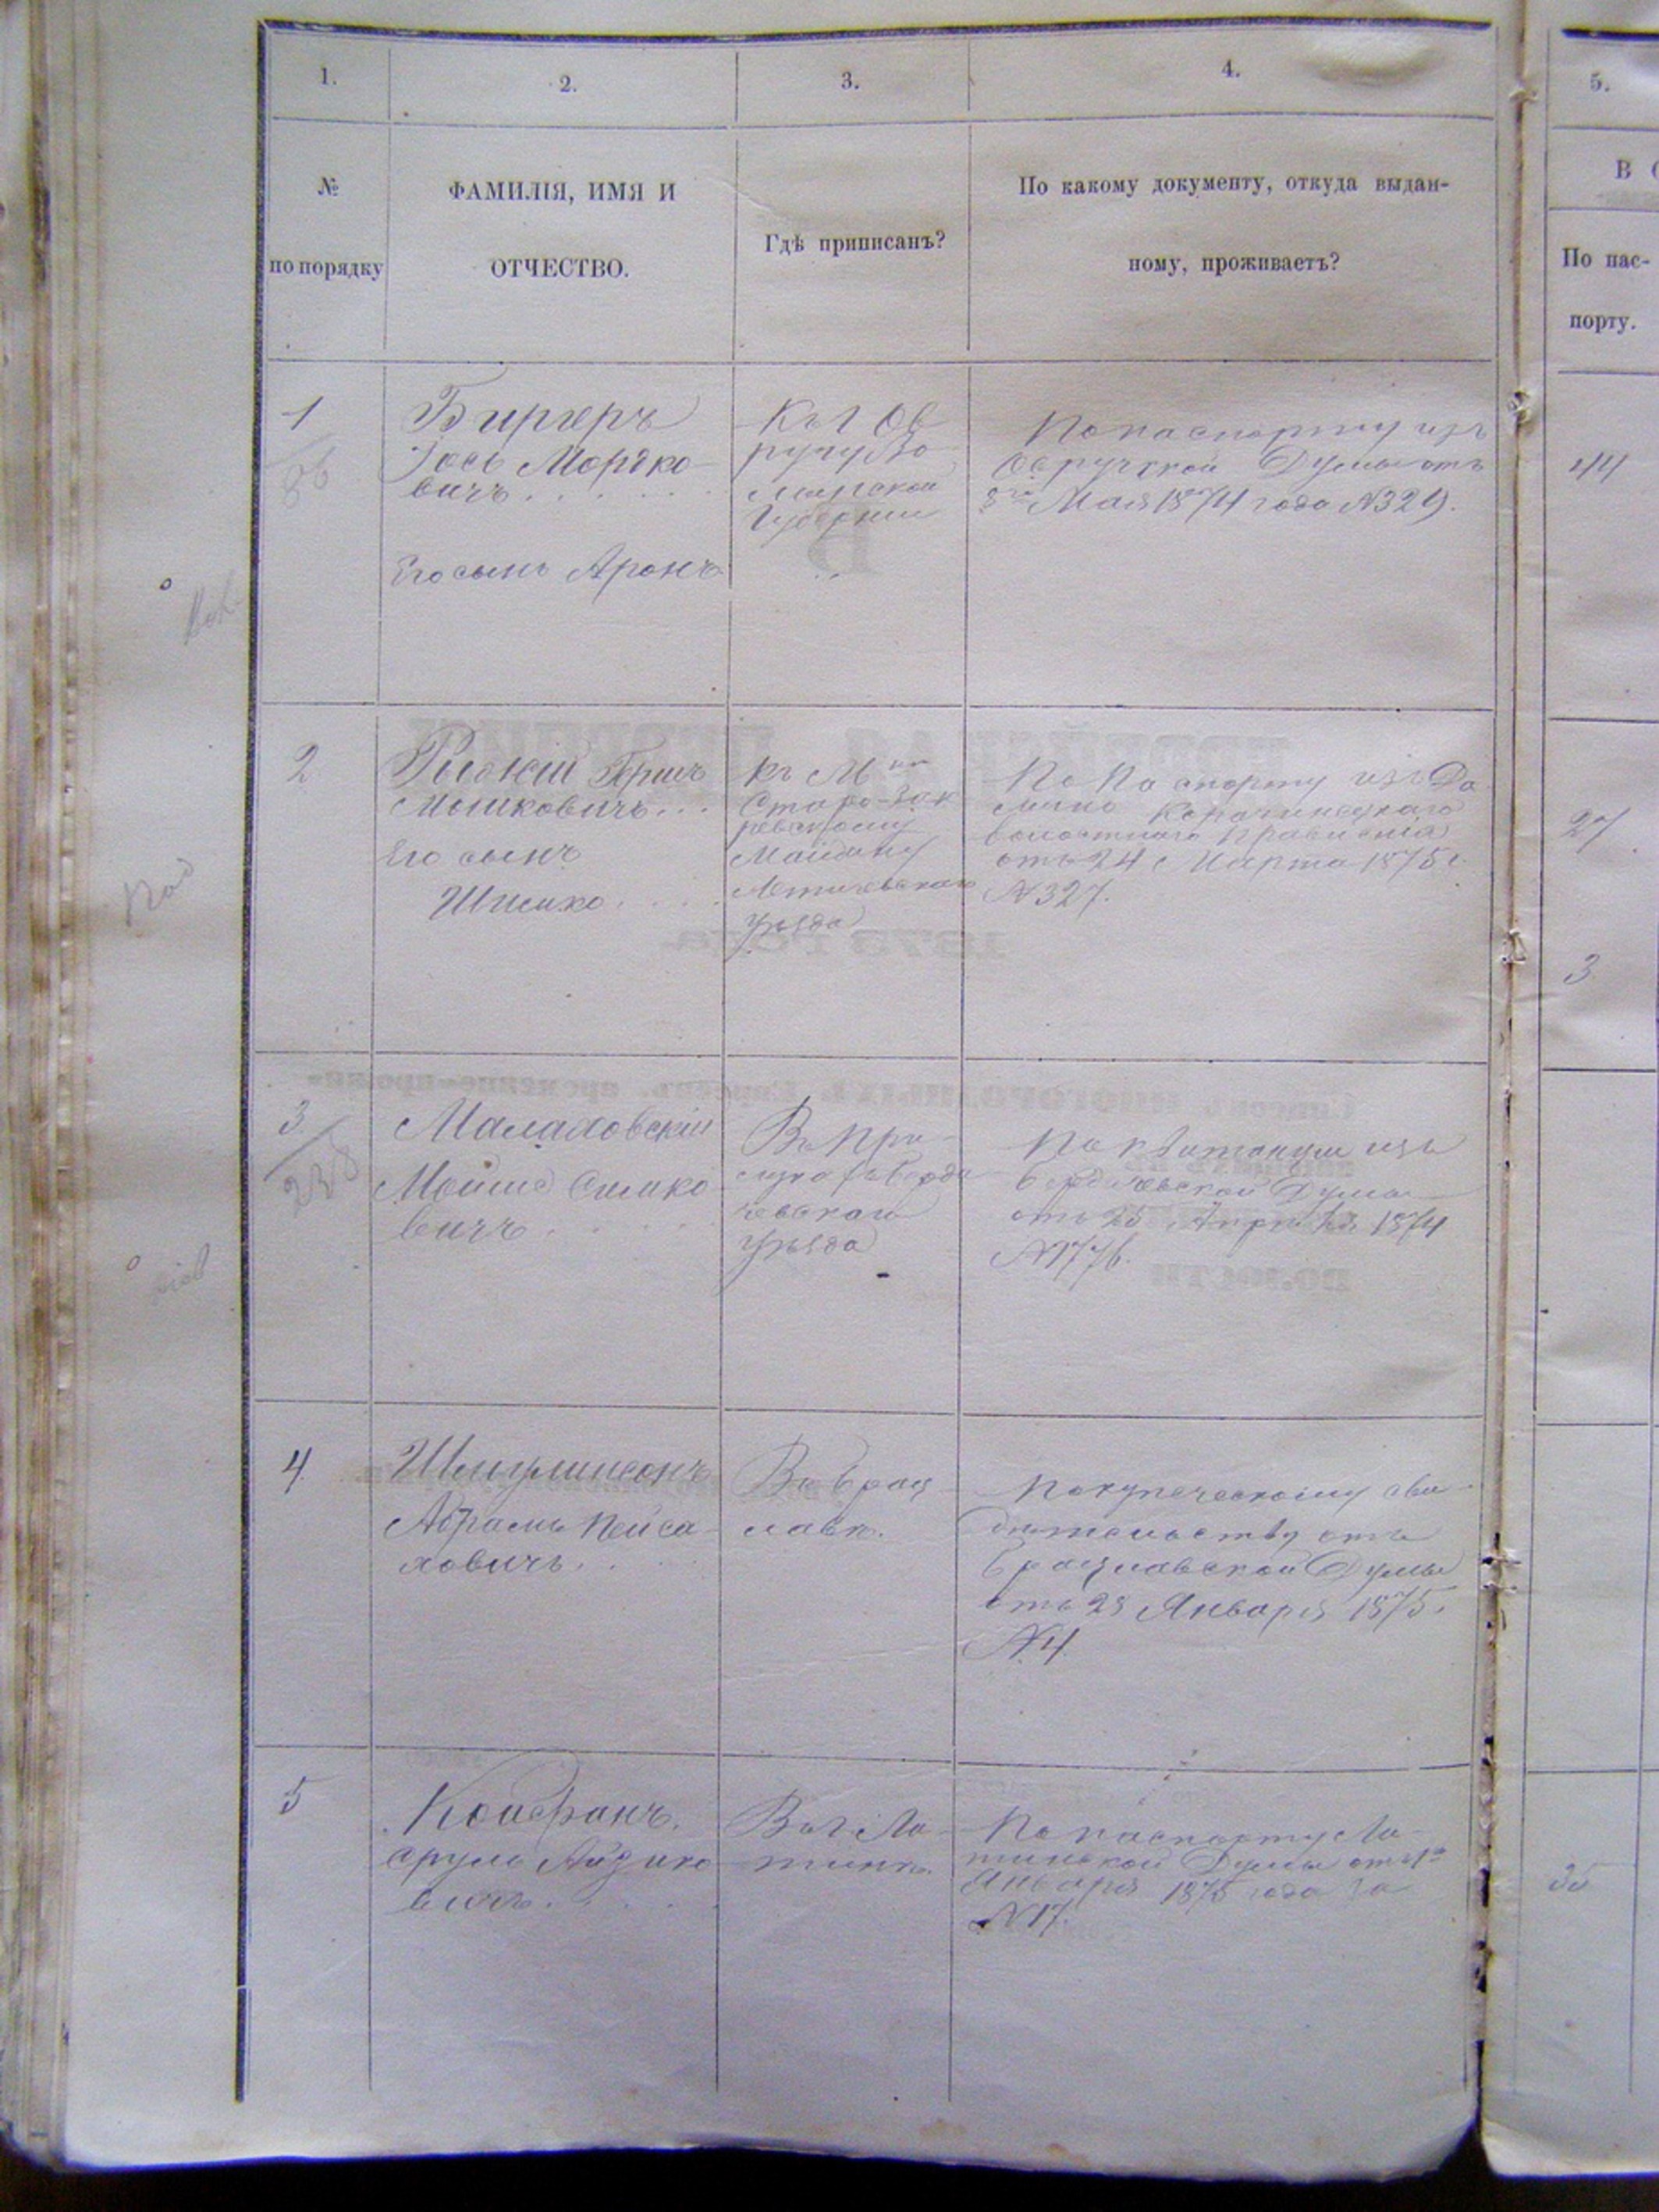 1.
2.
3.
4.
5.
№
по порядку
ФАМИЛІЯ, ИМЯ И
ОТЧЕСТВО.
Гдѣ приписанъ?
По какому документу, откуда выдан-
ному, проживаетъ?
В
По пас-
порту.
1
86
Биргеръ
Іось Мордко-
вичъ
Его сынъ Аронъ
Къ г Ов
ручу Во
лынской
Губерніи
По паспорту изъ
Овручской Думы отъ
8го Мая 1874 года №329.
44
2
Рибкій Гершъ
Мошковичъ...
Его сынъ
Шмилко
Къ Мку
Старо-Зак
ревскому
Майдану
Летичевскаго
уѣзда
По паспорту изъ
волостнаго Правленія
отъ 24 Марта 1875 г.
№327.
27
3
3
238
Маламовскій
Мойше Симко
вичъ
Въ При
лука Берди
чевскаго
уѣзда
По квитанціи изъ
Бердичевской Думы
отъ 25 Апрѣля 1874
№1776.
4
Шмулинсонъ
Абрамъ Пейса
ховичъ
Въ Брац
лавѣ.
По купеческому сви
дѣтельству отъ
Брацлавской Думы
отъ 28 Января 1875.
№4
5
Койфманъ
Срулъ Айзико
вичъ
Въ г. Ли
тинѣ.
По паспорту Ли
тинской Думы отъ 1го
Января 1875 года за
№17.
35